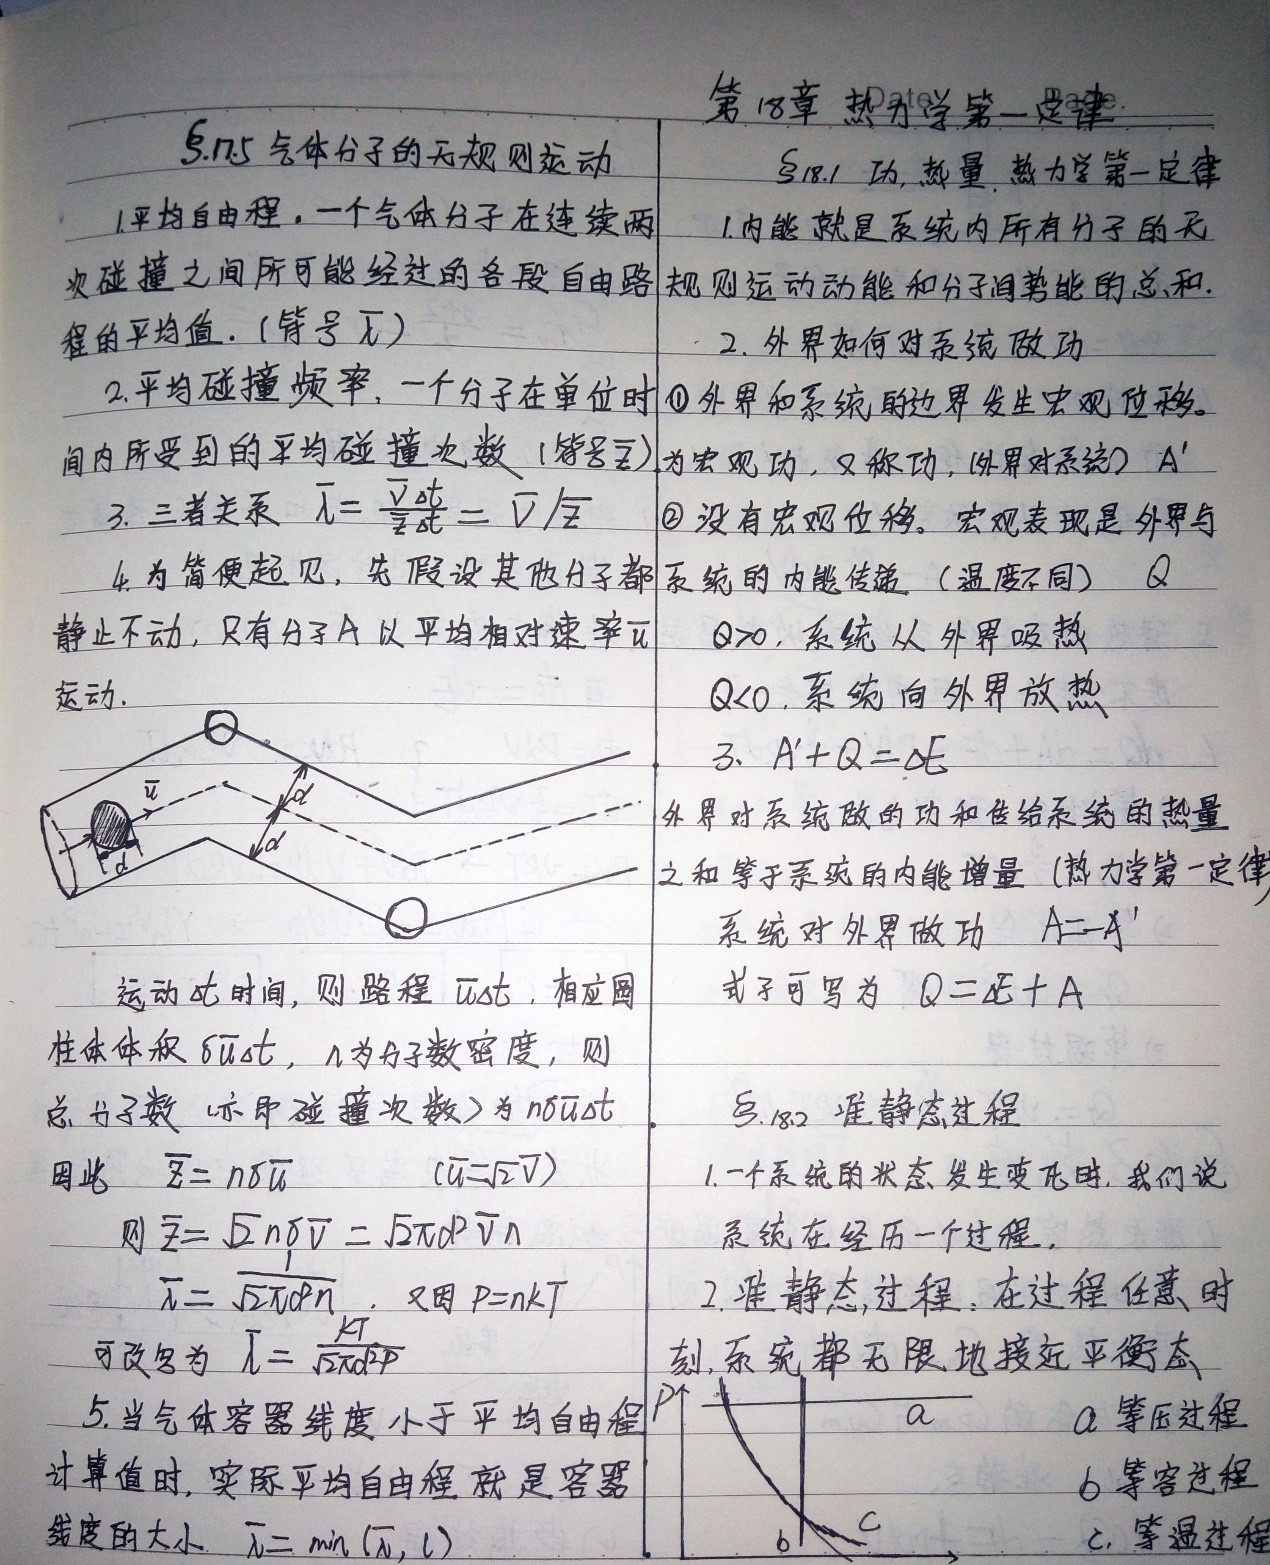 §.17.5 气体分子的无规则运动
1.平均自由程。一个气体分子在连续两
次碰撞之间所可能经过的各段自由路
程的平均值.(符号 λ̅)
2.平均碰撞频率,一个分子在单位时
间内所受到的平均碰撞次数(符号z̅)
3. 三者关系 λ̅ = v̅Δt / z̅Δt = v̅/z̅
4.为简便起见,先假设其他分子都
静止不动,只有分子A以平均相对速率u̅
运动.
u̅
d
d
d
运动Δt时间,则路程 u̅Δt,相应圆
柱体体积 σu̅Δt, n为分子数密度,则
总分子数(亦即碰撞次数)为nσu̅Δt
因此 z̅= nσu̅ (u̅=√2v̅)
则 z̅= √2nσv̅ = √2πd²v̅n
λ̅ = 1/√2πd²n . 又因 P=nkT
可改写为 λ̅ = kT/√2πd²P
5.当气体容器线度小于平均自由程
计算值时,实际平均自由程就是容器
线度的大小 λ̅= min(λ̅, l)
Date Page.
第18章 热力学第一定律
§18.1 功,热量,热力学第一定律
1.内能就是系统内所有分子的无
规则运动动能和分子间势能的总和.
2. 外界如何对系统做功
① 外界和系统的边界发生宏观位移。
为宏观功,又称功,(外界对系统) A'
② 没有宏观位移。宏观表现是外界与
系统的内能传递(温度不同) Q
Q>0,系统从外界吸热
Q<0,系统向外界放热
3. A'+Q=ΔE
外界对系统做的功和传给系统的热量
之和等于系统的内能增量(热力学第一定律)
系统对外界做功 A=-A'
式子可写为 Q=ΔE+A
§.18.2 准静态过程
1.一个系统的状态发生变化时,我们说
系统在经历一个过程.
2.准静态过程:在过程任意时
刻,系统都无限地接近平衡态
P
a
b
c
a 等压过程
b 等容过程
c. 等温过程